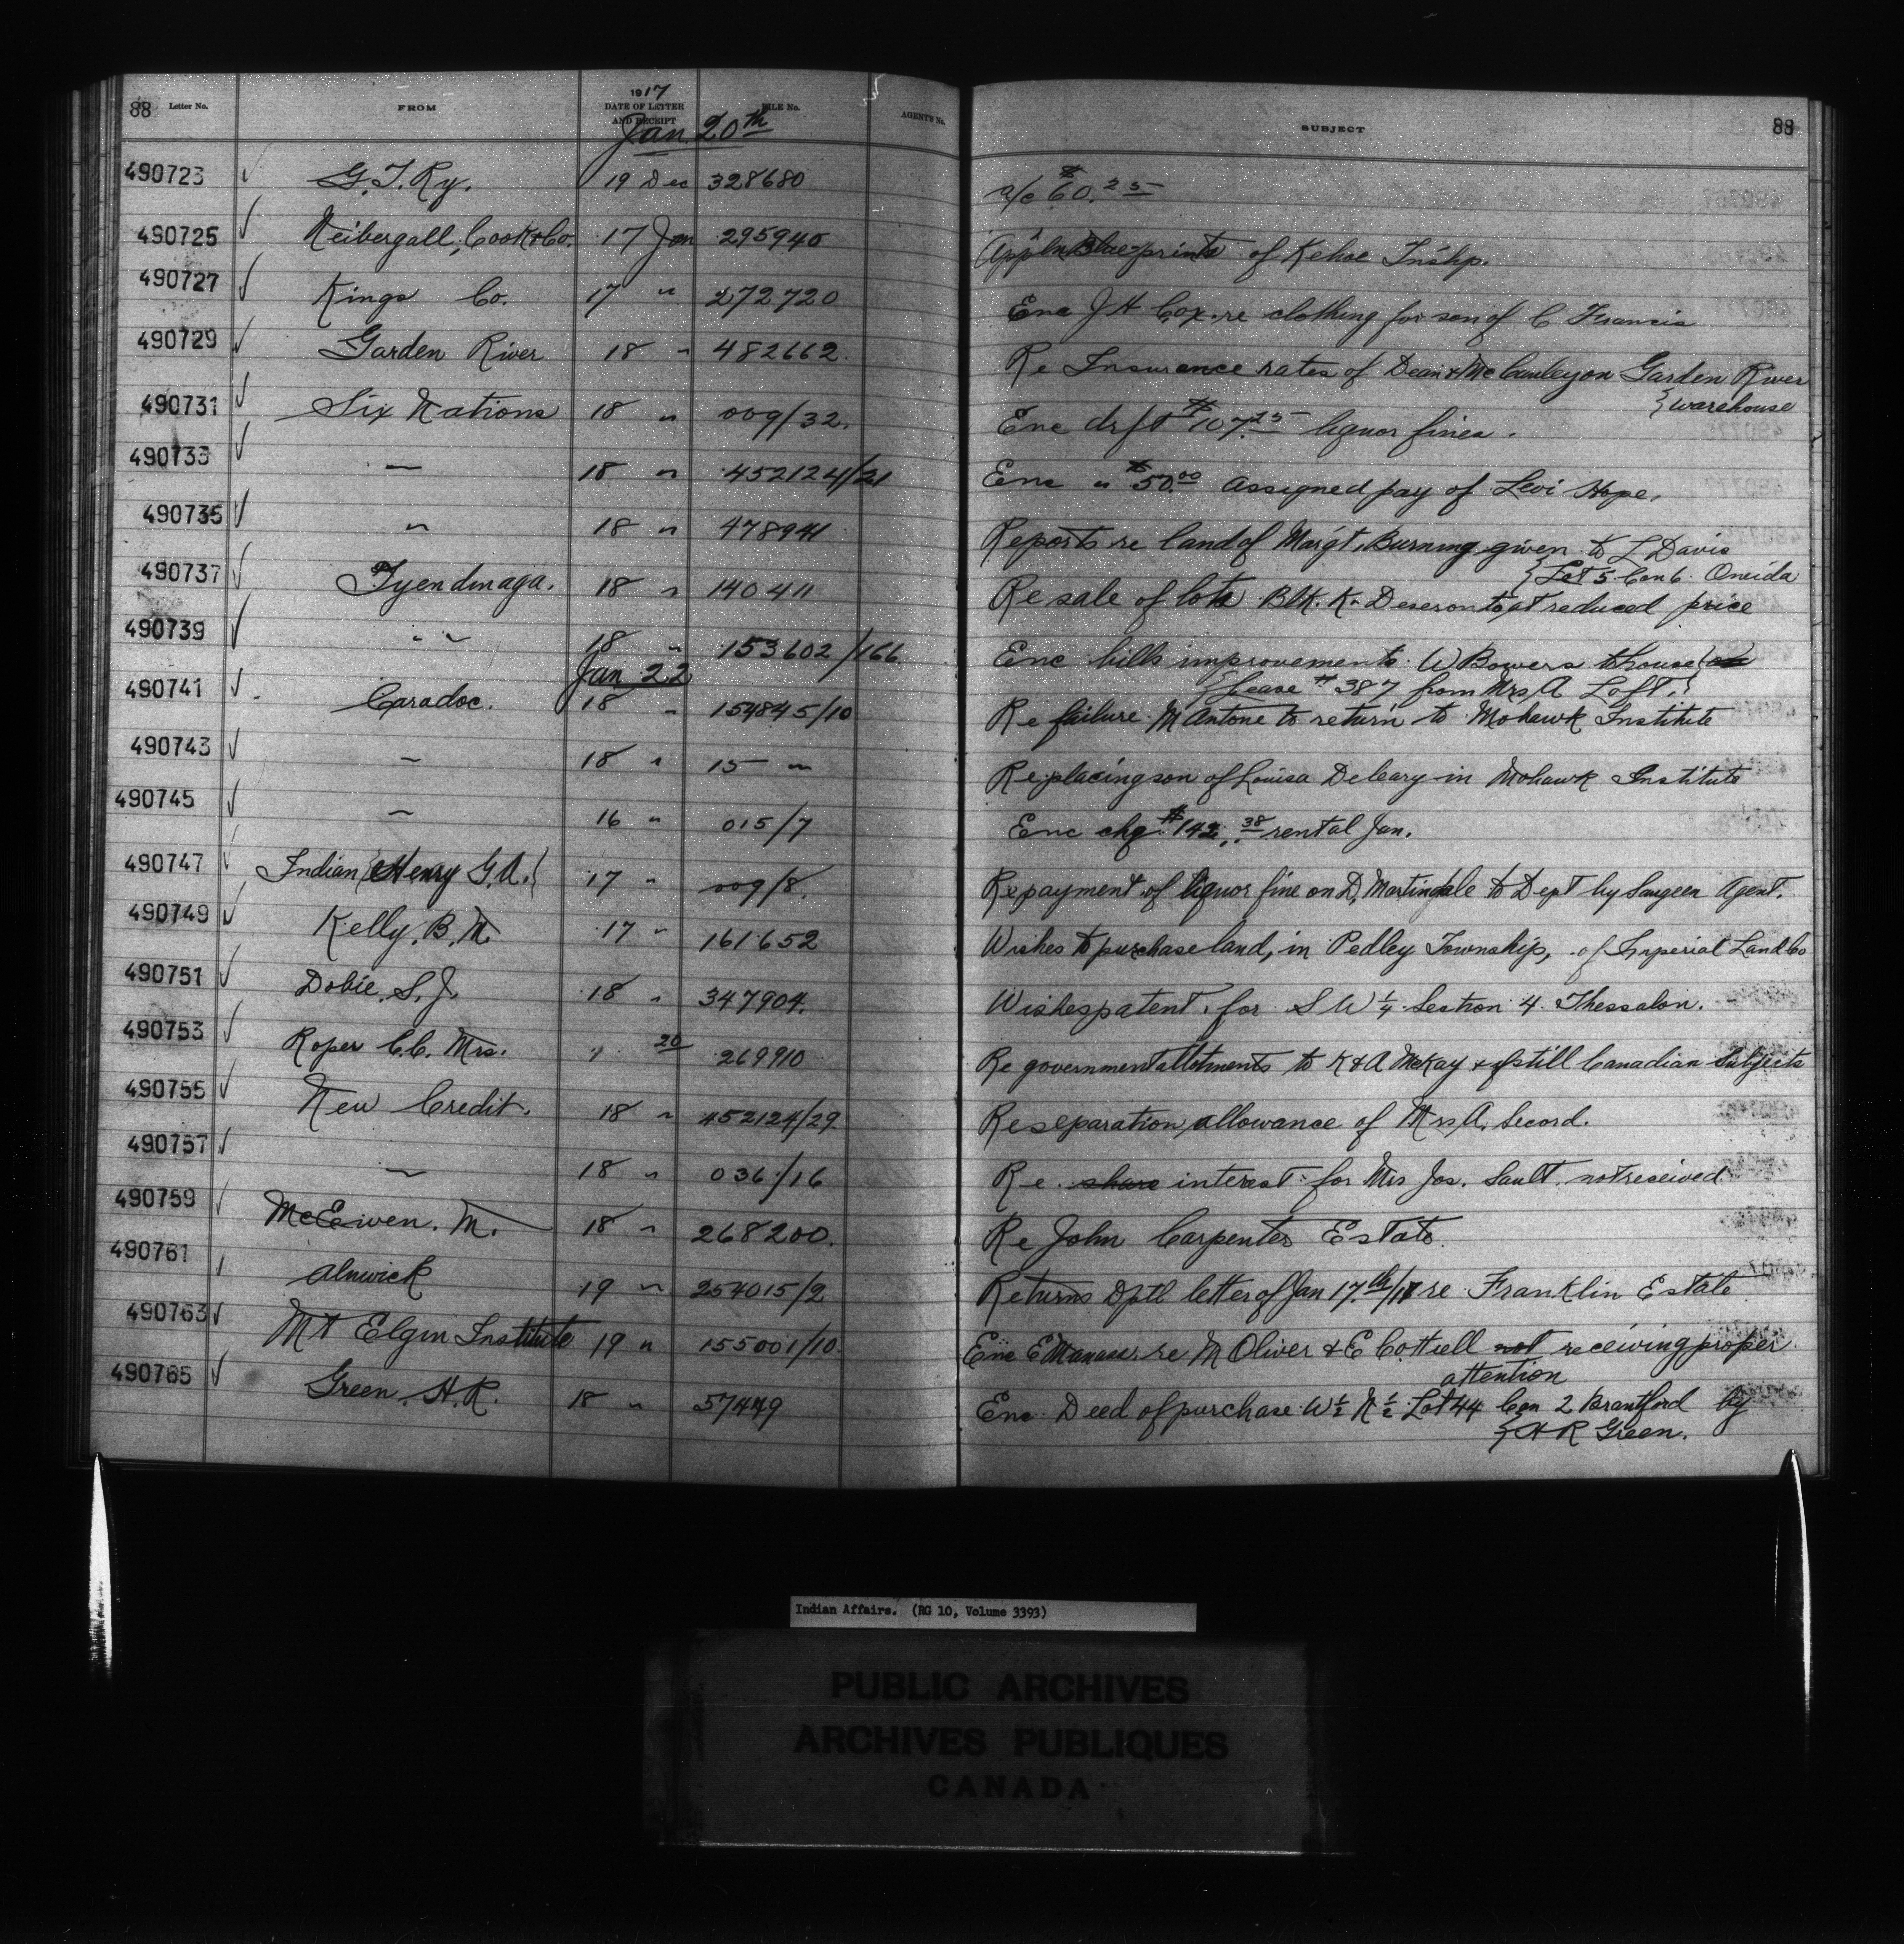 88 Letter No. FROM 1917 DATE OF LETTER AND RECEIPT FILE No. AGENT'S No. SUBJECT 88
Jan. 20th
490723 ✓ G.T.Ry. 19 Dec 328680 a/c $60.25
490725 ✓ Neibergall, Cook & Co. 17 Jan 295940 Appln Blueprints of Kehoe Tnshp.
490727 ✓ Kings Co. 17 " 272720 Enc J H Cox re clothing for son of C Francis
490729 ✓ Garden River 18 " 482662. Re Insurance rates of Dean & McCauley on Garden River
{ warehouse
490731 ✓ Six Nations 18 " 009/32. Enc drft $107.25 liquor fines.
490733 ✓ — 18 " 452124/21 Enc " $50.00 assigned pay of Levi Hope.
490735 ✓ " 18 " 478941 Reports re land of Marg't. Burning given to L Davis
{ Lot 5 Con 6. Oneida
490737 ✓ Tyendinaga. 18 " 140411 Re sale of lots Blk. K. Deseronto, at reduced price
490739 ✓ " 18 " 153602/166. Enc bills improvements W Bowers house
{ Lease # 387 from Mrs A Loft. }
Jan 22
490741 ✓ Caradoc. 18 " 154845/10 Re failure M Antone to return to Mohawk Institute
490743 ✓ — 18 " 15 — " Re placing son of Louisa Deleary in Mohawk Institute
490745 ✓ — 16 " 015/7 Enc chq. $142.38 rental Jan.
490747 ✓ Indian {Henry G.A.} 17 " 009/8. Re payment of liquor fine on D. Martindale to Dept by Saugeen Agent.
490749 ✓ Kelly, B. M. 17 " 161652 Wishes to purchase land, in Pedley Township, of Imperial Land Co
490751 ✓ Dobie, S. J. 18 " 347904. Wishes patent for S W ¼ Section 4 Thessalon.
490753 ✓ Roper C.C. Mrs. " 20 269910 Re government allotments to K & A McKay & if still Canadian Subjects
490755 ✓ New Credit. 18 " 452124/29 Re separation allowance of Mrs A. Secord.
490757 ✓ — 18 " 036/16 Re share interest for Mrs Jos. Sault not received
490759 ✓ McEwen. M. 18 " 268200. Re John Carpenter Estate.
490761 ✓ Alnwick 19 " 254015/2 Returns Dptl letter of Jan 17th/17 re Franklin Estate
490763 ✓ Mt Elgin Institute 19 " 155001/10. Enc E Manass. re M Oliver & E Cottrell not receiving proper
attention
490765 ✓ Green. H.R. 18 " 57449 Enc Deed of purchase W½ N½ Lot 44 Con 2 Brantford by
{ H R Green.
Indian Affairs. (RG 10, Volume 3393)
PUBLIC ARCHIVES
ARCHIVES PUBLIQUES
CANADA